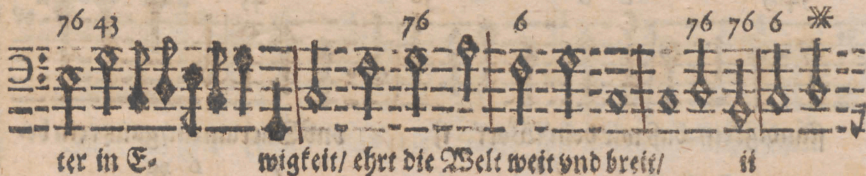 76 43 76 6 76 76 6 ※
ter in E- wigkeit/ ehrt die Welt weit vnd breit/ ij